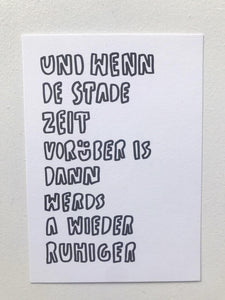 UND WENN
DE STADE
ZEIT
VORÜBER IS
DANN
WERDS
A WIEDER
RUHIGER